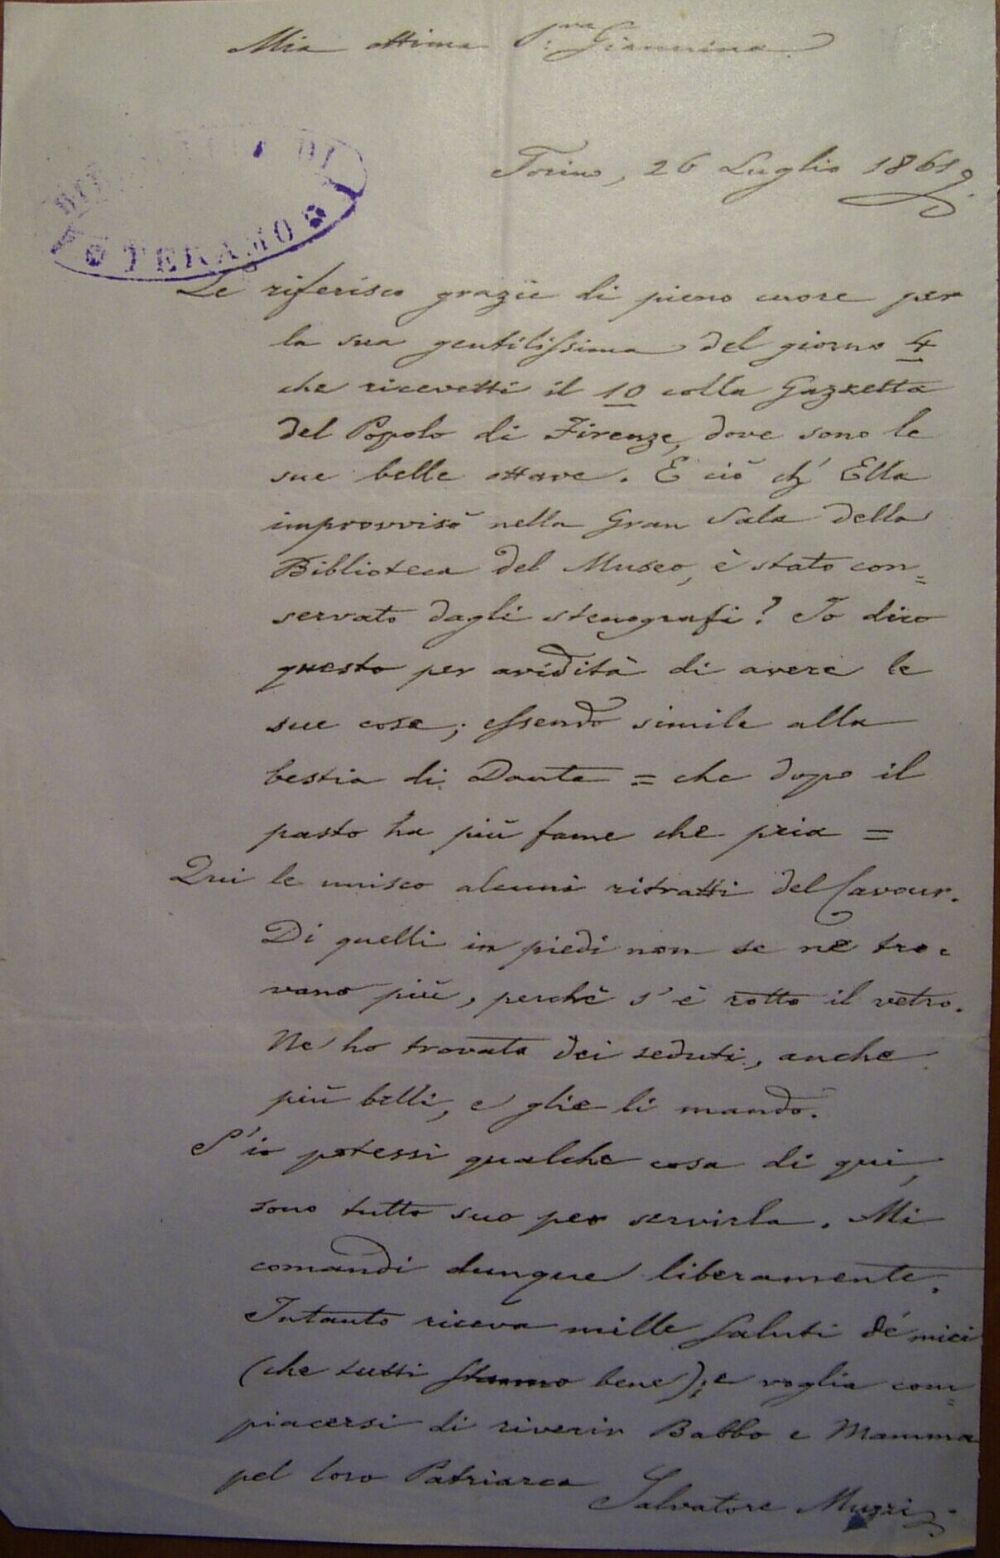 Mia ottima S.ra Giannina.
Torino, 26 Luglio 1861
TERAMO
Le riferisco grazie di pieno cuore per
la sua gentilissima del giorno 4
che ricevetti il 10 colla Gazzetta
del Popolo di Firenze, dove sono le
sue belle ottave. E ciò ch' Ella
improvvisò nella Gran Sala della
Biblioteca del Museo, è stato con=
servato dagli stenografi? Io dico
questo per avidità di avere le
sue cose; essendo simile alla
bestia di Dante = che dopo il
pasto ha più fame che pria =
Qui le unisco alcuni ritratti del Cavour.
Di quelli in piedi non se ne tro=
vano più, perchè s'è rotto il vetro.
Ne ho trovato dei seduti, anche
più belli, e glie li mando.
S'io potessi qualche cosa di qui,
sono tutto suo per servirla. Mi
comandi dunque liberamente.
Intanto riceva mille saluti de' miei
(che tutti stanno bene); e voglia com=
piacersi di riverir Babbo e Mamma
pel loro Patriarca
Salvatore Muzzi